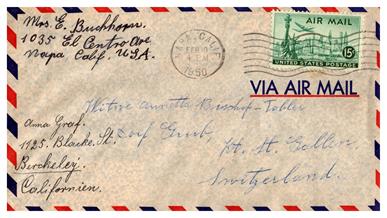 Mrs. E. Buchhorn
1035 El Centro Ave
Napa Calif. USA.
NAPA, CALIF.
FEB 10
4 PM
1950
AIR MAIL
15¢
UNITED STATES POSTAGE
VIA AIR MAIL
Witwe Annetta Bischof-Tobler
Dorf Grub.
Kt. St. Gallen
Switzerland.
Anna Graf.
1725. Blacke. St.
Berckeley.
Californien.